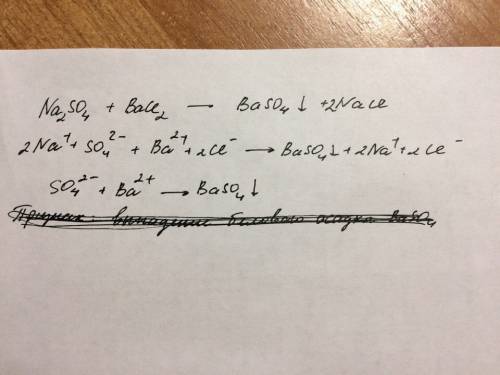 Na₂SO₄ + BaCl₂ → BaSO₄↓ + 2NaCl
2Na⁺ + SO₄²⁻ + Ba²⁺ + 2Cl⁻ → BaSO₄↓ + 2Na⁺ + 2Cl⁻
SO₄²⁻ + Ba²⁺ → BaSO₄↓
Признак: выпадение белового осадка BaSO₄